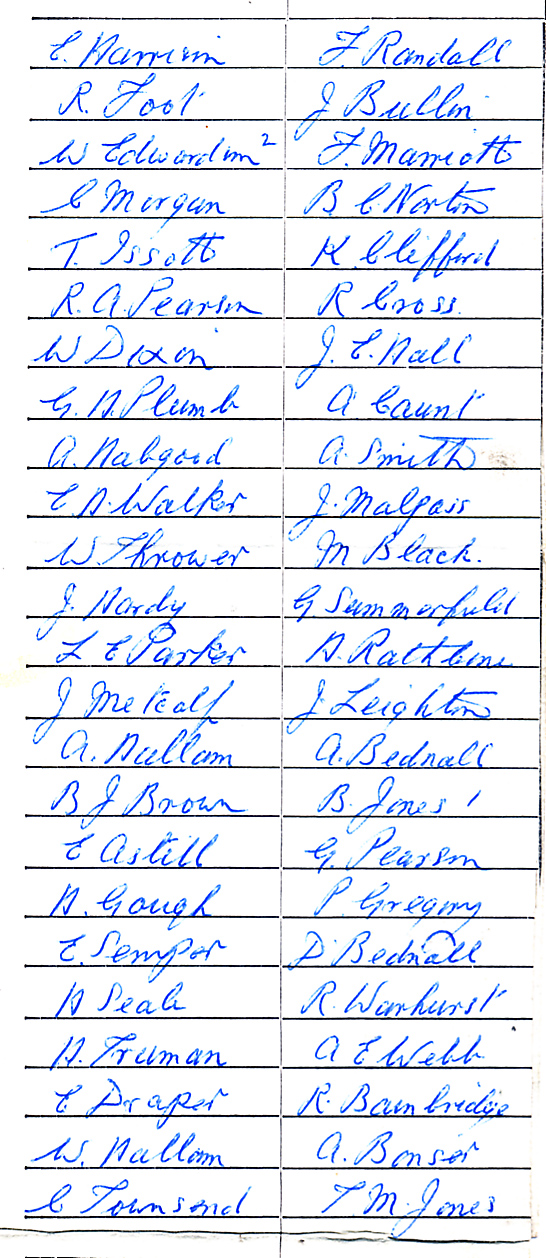 E. Harrison F. Randall
R. Foot J Bullin
W Edwardson 2 F. Marriott
C Morgan B C Norton
T. Issott K Clifford
R. A. Pearson R Cross.
W Dixon J. E. Hall
G. H. Plumb A Gaunt
A. Habgood A. Smith
E H. Walker J. Malpass
W Thrower M Black.
J. Hardy G. Summerfield
L E Parker H. Rathbone
J Metcalf J Leighton
A. Hallam A. Bednall
B J Brown B. Jones 1
E Astill G. Pearson
H. Gough P Gregory
E. Semper D Bednall
H Seal R. Warhurst
H. Truman A E Webb
E Draper R. Bambridge
W. Hallam A. Bonser
C Townsend T M. Jones